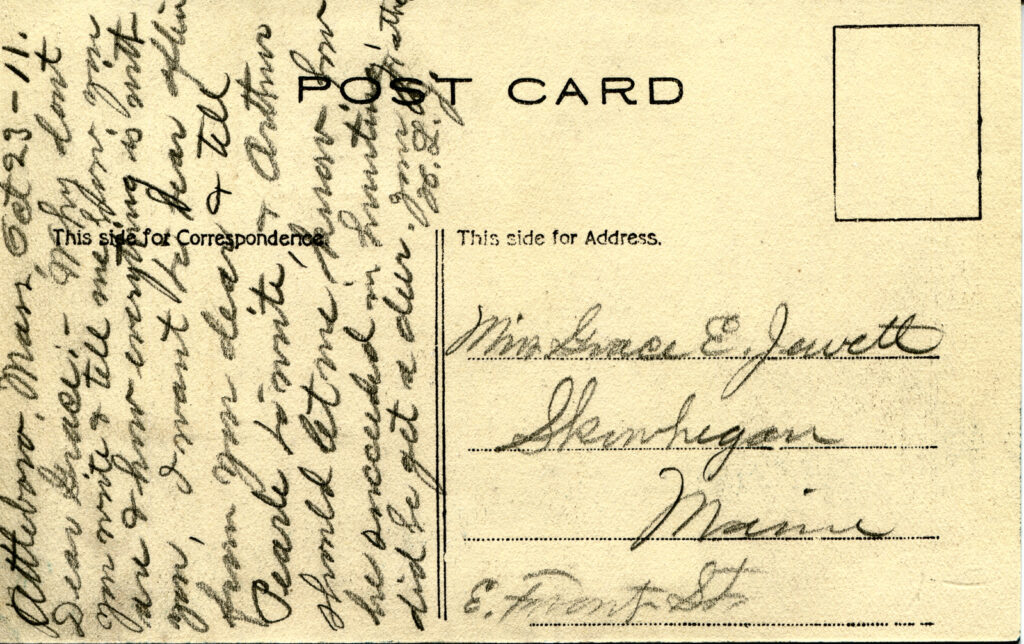 POST CARD
This side for Correspondence.
This side for Address.
Attleboro, Mass, Oct 23-11.
Dear Grace:- Why dont
you write & tell me how you
are & how everything is with
you, I want to hear often
from you dear & tell
Pearle to write, & Arthur
should let me know how
he succeeded in hunting,
did he get a deer. your
Miss Grace E. Jewett
Skowhegan
Maine
E. Front St.